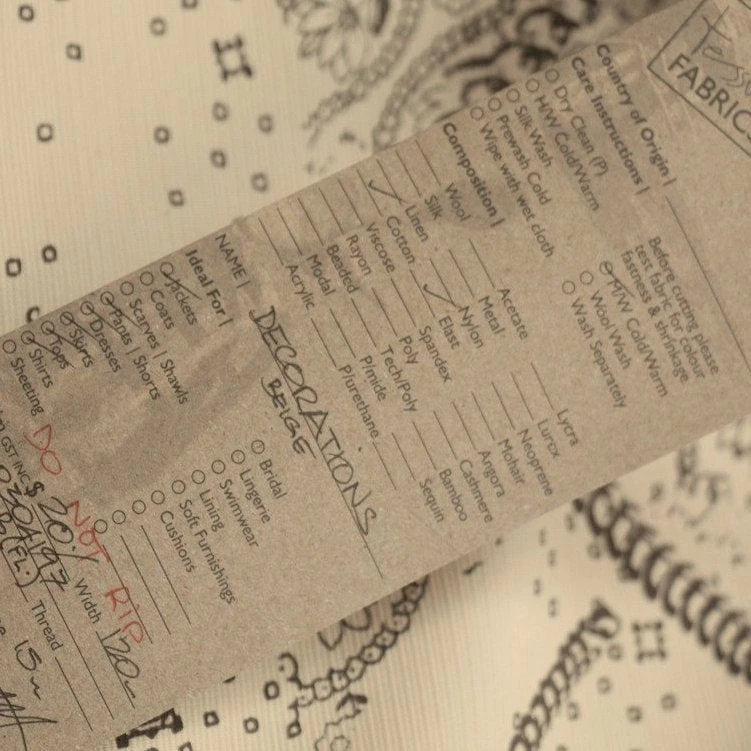 Tessu
FABRIC
Country of Origin |
Care Instructions |
Dry Clean (P)
H/W Cold/Warm
Silk Wash
Prewash Cold
Wipe with wet cloth
Before cutting please
test fabric for colour
fastness & shrinkage
H/W Cold/Warm
Wool Wash
Wash Separately
Composition |
Wool
Silk
Linen
Cotton
Viscose
Rayon
Beaded
Modal
Acrylic
Acetate
Metal
Nylon
Elast
Spandex
Poly
Tech/Poly
P/mide
P/urethane
Lycra
Lurex
Neoprene
Mohair
Angora
Cashmere
Bamboo
Sequin
NAME |
DECORATIONS
BEIGE
Ideal For |
Jackets
Coats
Scarves | Shawls
Pants | Shorts
Dresses
Skirts
Tops
Shirts
Sheeting
Bridal
Lingerie
Swimwear
Lining
Soft Furnishings
Cushions
DO NOT RIP
GST INC $ 20./
Width 120
Thread
15